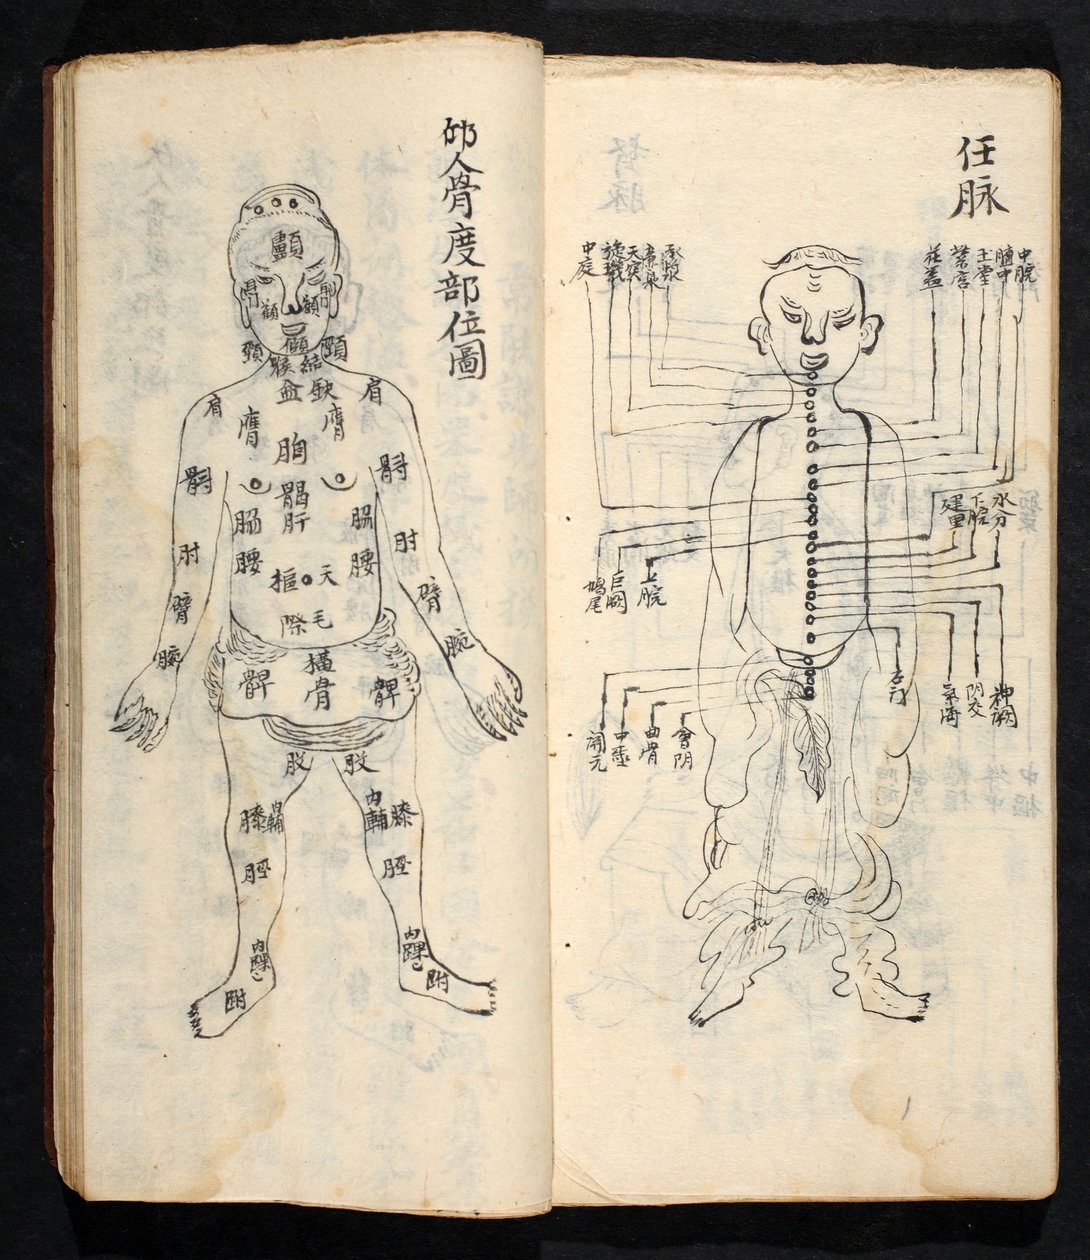 任脉
中脘
膻中
玉堂
紫宮
花蓋
承漿
廉泉
天突
璇璣
中庭
水分
下脘
建里
上脘
巨闕
鳩尾
神闕
阴交
氣海
石门
會阴
曲骨
中亟
関元
仰人骨度部位圖
顱
顴
顴
頸
頸
結喉
缺盆
肩
肩
膺
膺
胸
𩩲骬
脇
脇
肘
肘
腰
腰
天樞
臂
臂
毛際
腕
腕
橫骨
髀
髀
股
股
膝
內輔
內輔
膝
脛
脛
內踝
內踝
跗
跗